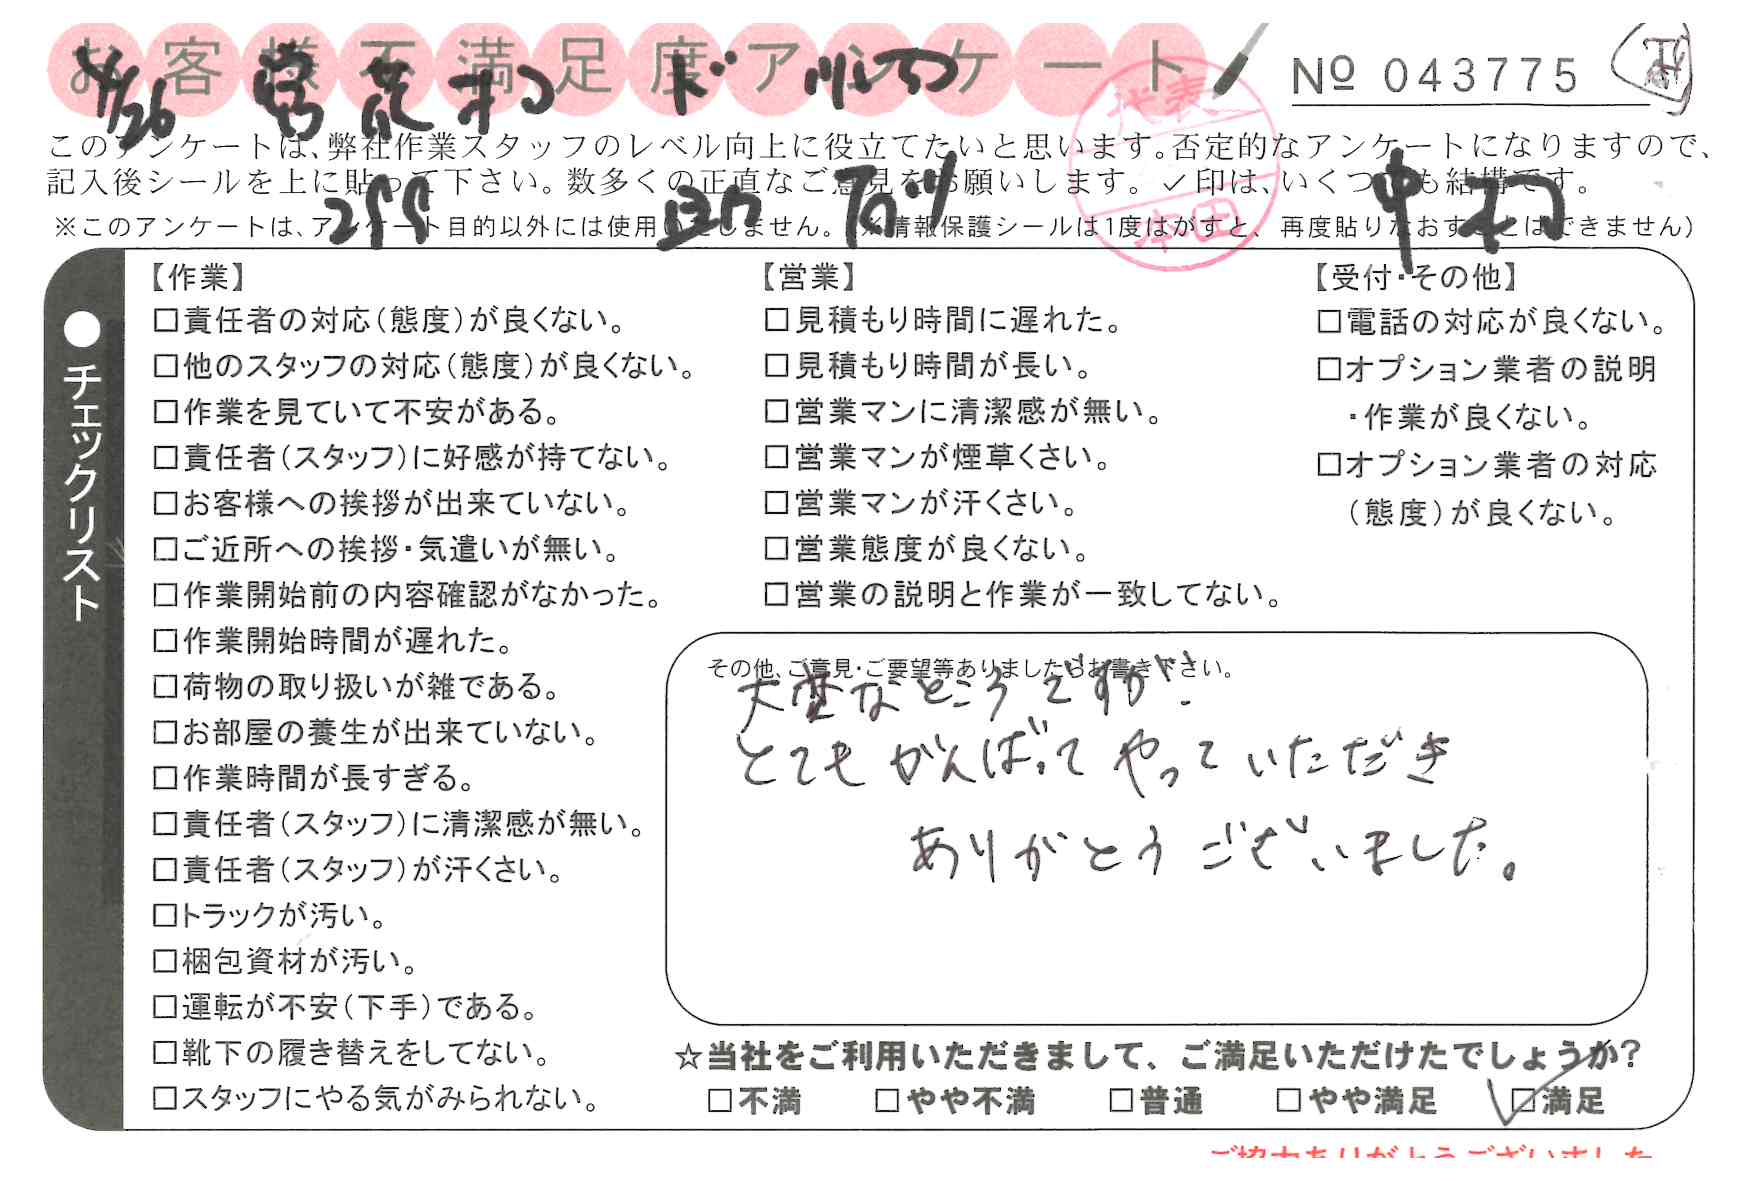 お客様不満足度アンケート
№ 043775
4/26
代表
本田
このアンケートは、弊社作業スタッフのレベル向上に役立てたいと思います。否定的なアンケートになりますので、
記入後シールを上に貼って下さい。数多くの正直なご意見をお願いします。✓印は、いくつでも結構です。
※このアンケートは、アンケート目的以外には使用いたしません。(※情報保護シールは1度はがすと、再度貼りなおすことはできません)
●チェックリスト
【作業】
□責任者の対応(態度)が良くない。
□他のスタッフの対応(態度)が良くない。
□作業を見ていて不安がある。
□責任者(スタッフ)に好感が持てない。
□お客様への挨拶が出来ていない。
□ご近所への挨拶・気遣いが無い。
□作業開始前の内容確認がなかった。
□作業開始時間が遅れた。
□荷物の取り扱いが雑である。
□お部屋の養生が出来ていない。
□作業時間が長すぎる。
□責任者(スタッフ)に清潔感が無い。
□責任者(スタッフ)が汗くさい。
□トラックが汚い。
□梱包資材が汚い。
□運転が不安(下手)である。
□靴下の履き替えをしてない。
□スタッフにやる気がみられない。
【営業】
□見積もり時間に遅れた。
□見積もり時間が長い。
□営業マンに清潔感が無い。
□営業マンが煙草くさい。
□営業マンが汗くさい。
□営業態度が良くない。
□営業の説明と作業が一致してない。
【受付・その他】
□電話の対応が良くない。
□オプション業者の説明
・作業が良くない。
□オプション業者の対応
(態度)が良くない。
その他、ご意見・ご要望等ありましたらお書き下さい。
大変なところですが、
とてもがんばってやっていただき
ありがとうございました。
☆当社をご利用いただきまして、ご満足いただけたでしょうか?
□不満 □やや不満 □普通 □やや満足 ☑満足
ご協力ありがとうございました